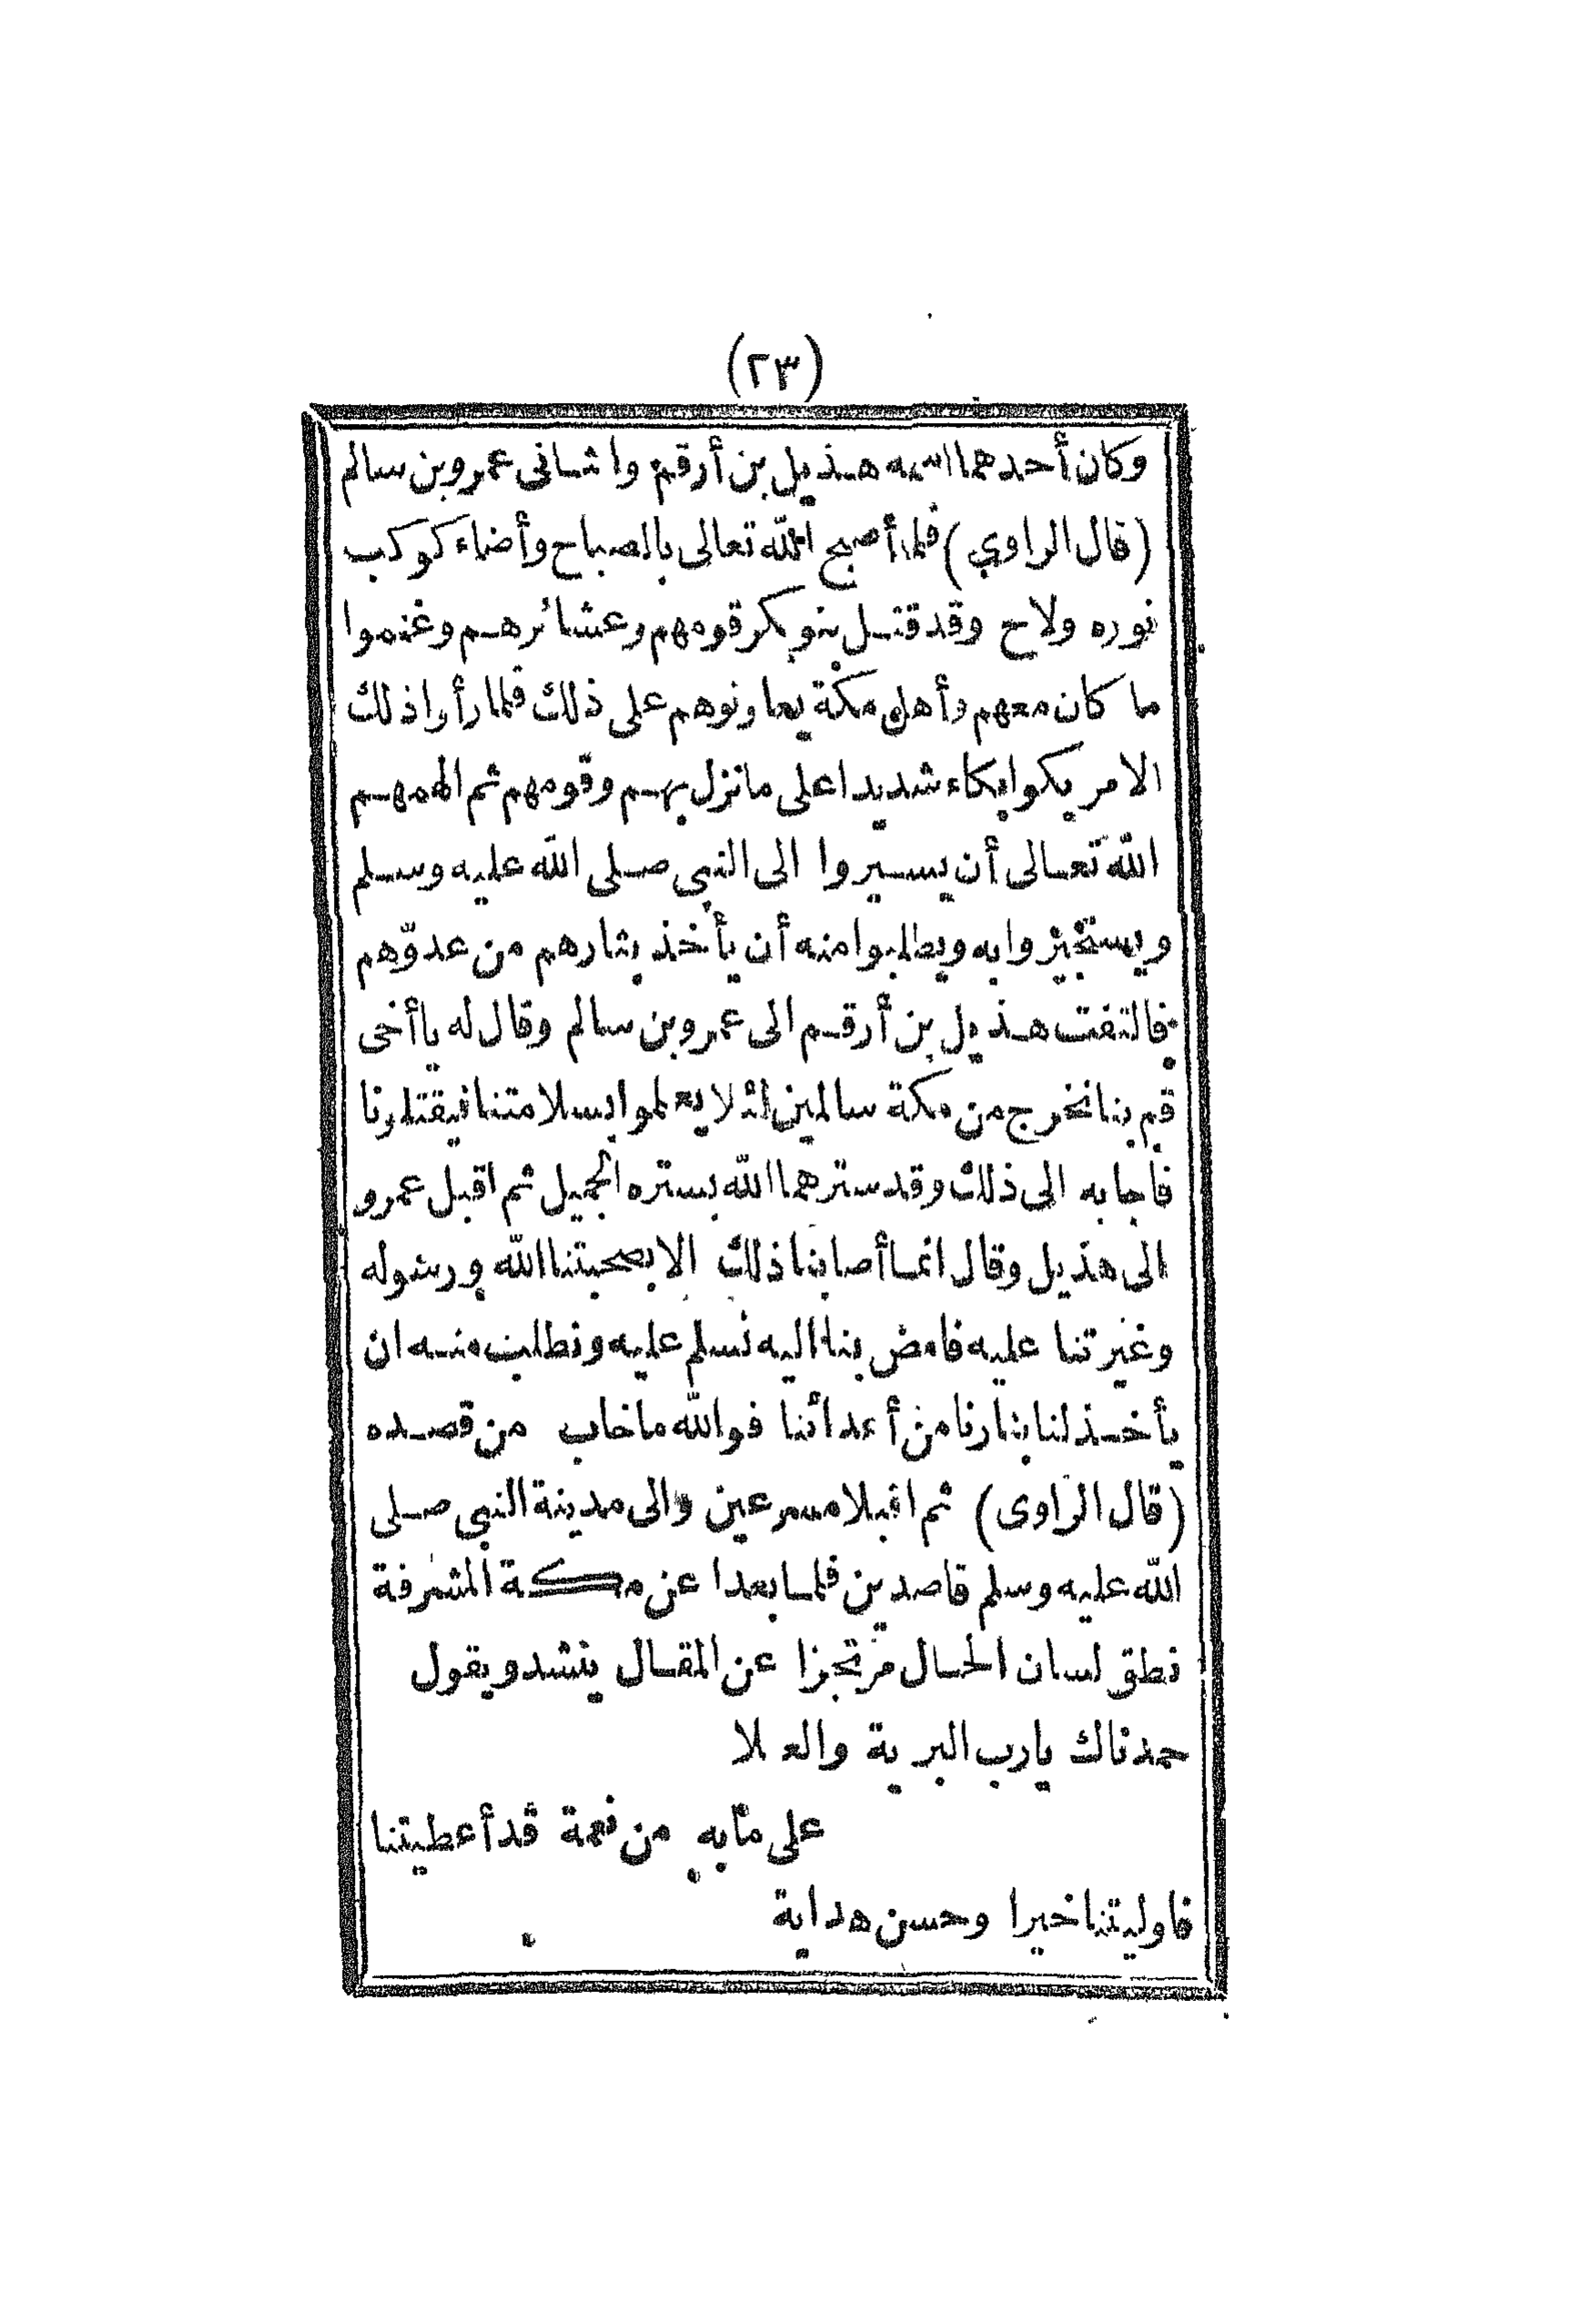 (٢٣)
وكان أحدهما اسمه هذيل بن أرقم والثانى عمرو بن سالم
(قال الراوي) فلما أصبح الله تعالى بالصباح وأضاء كوكب
نوره ولاح وقد قتل بنو بكر قومهم وعشائرهم وغنموا
ما كان معهم وأهل مكة يعاونوهم على ذلك فلما رأوا ذلك
الامر بكوا بكاء شديدا على ما نزل بهم وقومهم ثم الهمهم
الله تعالى أن يسيروا الى النبى صلى الله عليه وسلم
ويستجيروا به ويطلبوا منه أن يأخذ بثارهم من عدوّهم
فالتفت هذيل بن أرقم الى عمرو بن سالم وقال له يا أخى
قم بنا نخرج من مكة سالمين لئلا يعلموا بسلامتنا فيقتلونا
فاجابه الى ذلك وقد سترهما الله بستره الجميل ثم اقبل عمرو
الى هذيل وقال انما أصابنا ذلك الا بصحبتنا الله ورسوله
وغيرتنا عليه فامض بنا اليه نسلم عليه ونطلب منه ان
يأخذ لنا بثارنا من أعدائنا فوالله ما خاب من قصده
(قال الراوى) ثم اقبلا مسرعين والى مدينة النبى صلى
الله عليه وسلم قاصدين فلما بعدا عن مكة المشرفة
نطق لسان الحال مرتجزا عن المقال ينشد ويقول
حمدناك يارب البرية والعلا
على ما به من نعمة قد أعطيتنا
فاوليتنا خيرا وحسن هداية